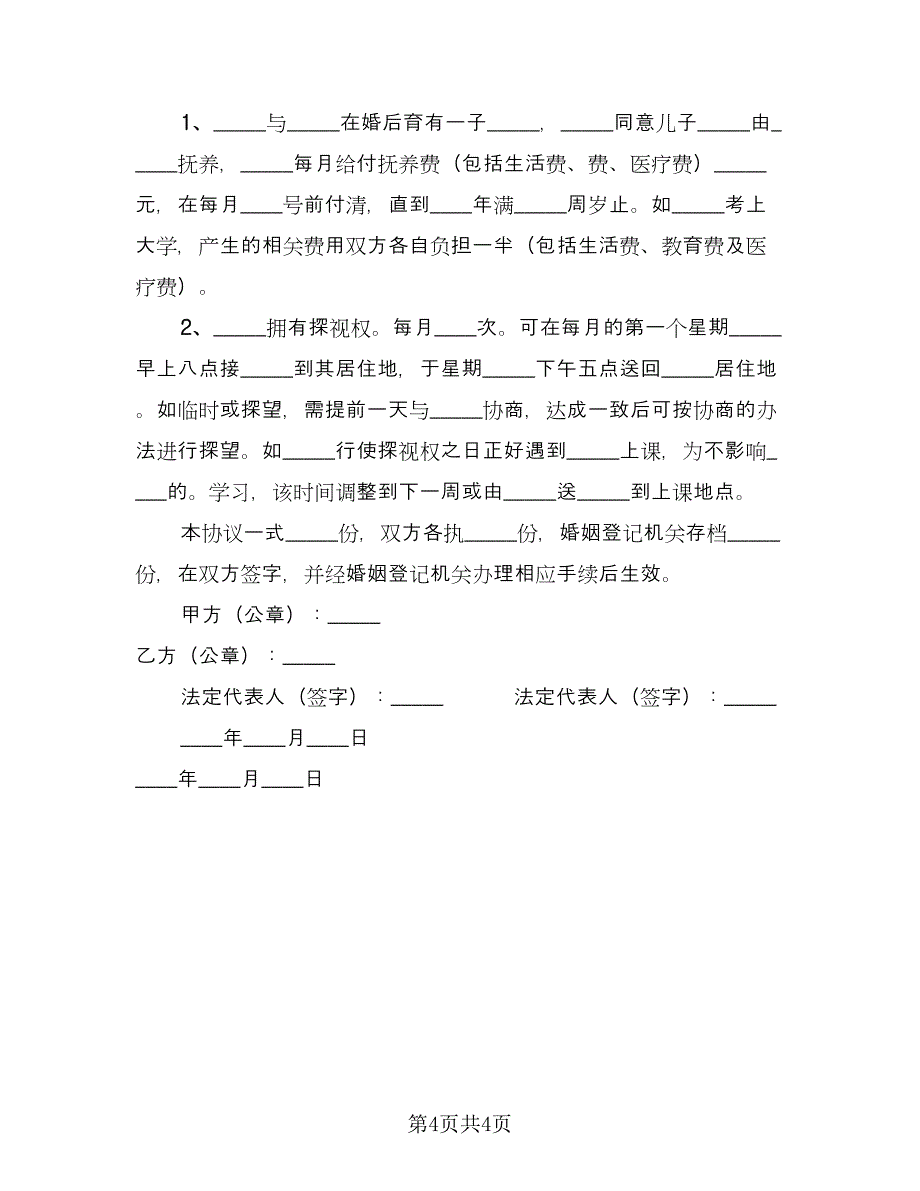 1、_____与_____在婚后育有一子_____，_____同意儿子_____由_
____抚养，_____每月给付抚养费（包括生活费、费、医疗费）_____
元，在每月____号前付清，直到____年满_____周岁止。如_____考上
大学，产生的相关费用双方各自负担一半（包括生活费、教育费及医
疗费）。
2、_____拥有探视权。每月____次。可在每月的第一个星期_____
早上八点接_____到其居住地，于星期_____下午五点送回_____居住地
。如临时或探望，需提前一天与_____协商，达成一致后可按协商的办
法进行探望。如_____行使探视权之日正好遇到_____上课，为不影响_
___的。学习，该时间调整到下一周或由_____送_____到上课地点。
本协议一式_____份，双方各执_____份，婚姻登记机关存档_____
份，在双方签字，并经婚姻登记机关办理相应手续后生效。
甲方（公章）：_____
乙方（公章）：_____
法定代表人（签字）：_____ 法定代表人（签字）：_____
____年____月____日
____年____月____日
第4页共4页